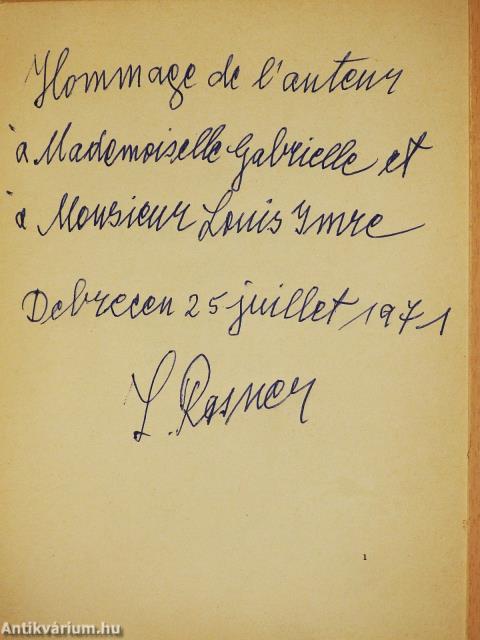 Hommage de l'auteur
à Mademoiselle Gabrielle et
à Monsieur Louis Imre
Debrecen 25 juillet 1971
L. Rasner
1
Antikvárium.hu